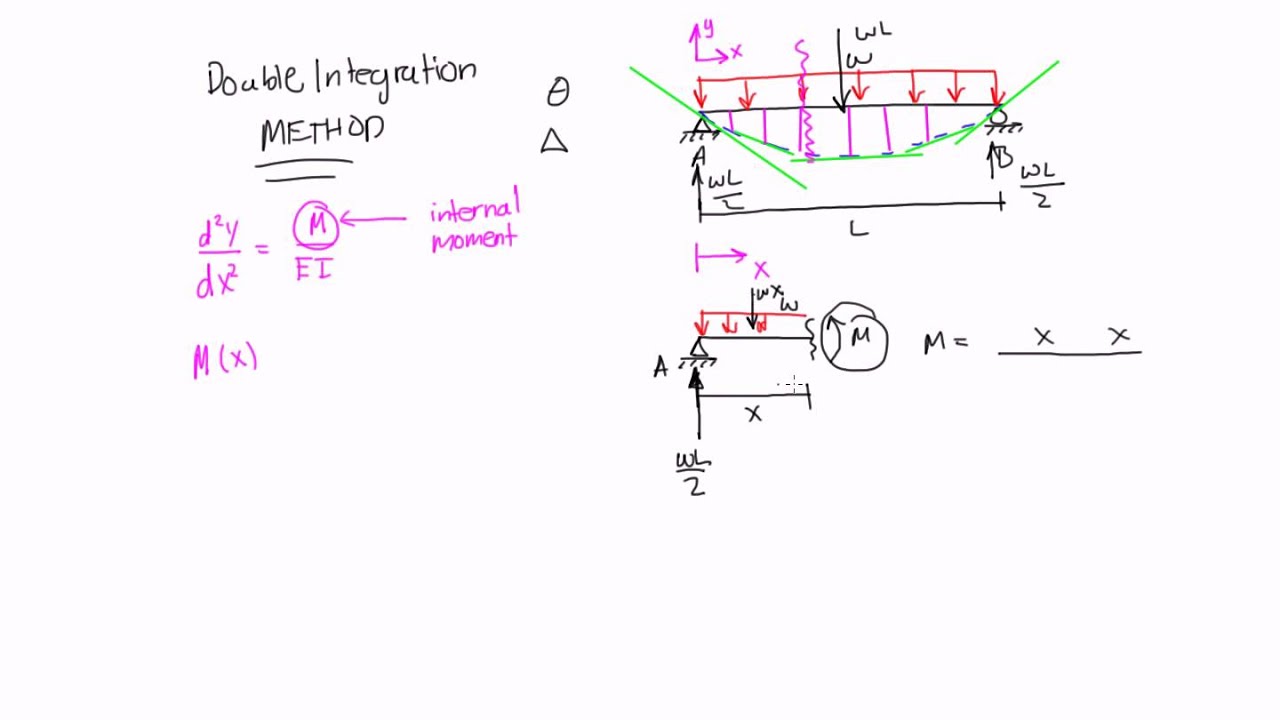 Double Integration
METHOD
θ
Δ
d²y/dx² = M/EI
internal
moment
M(x)
y
x
wL
w
A
B
wL/2
wL/2
L
x
wx
w
A
M
x
wL/2
M = x x